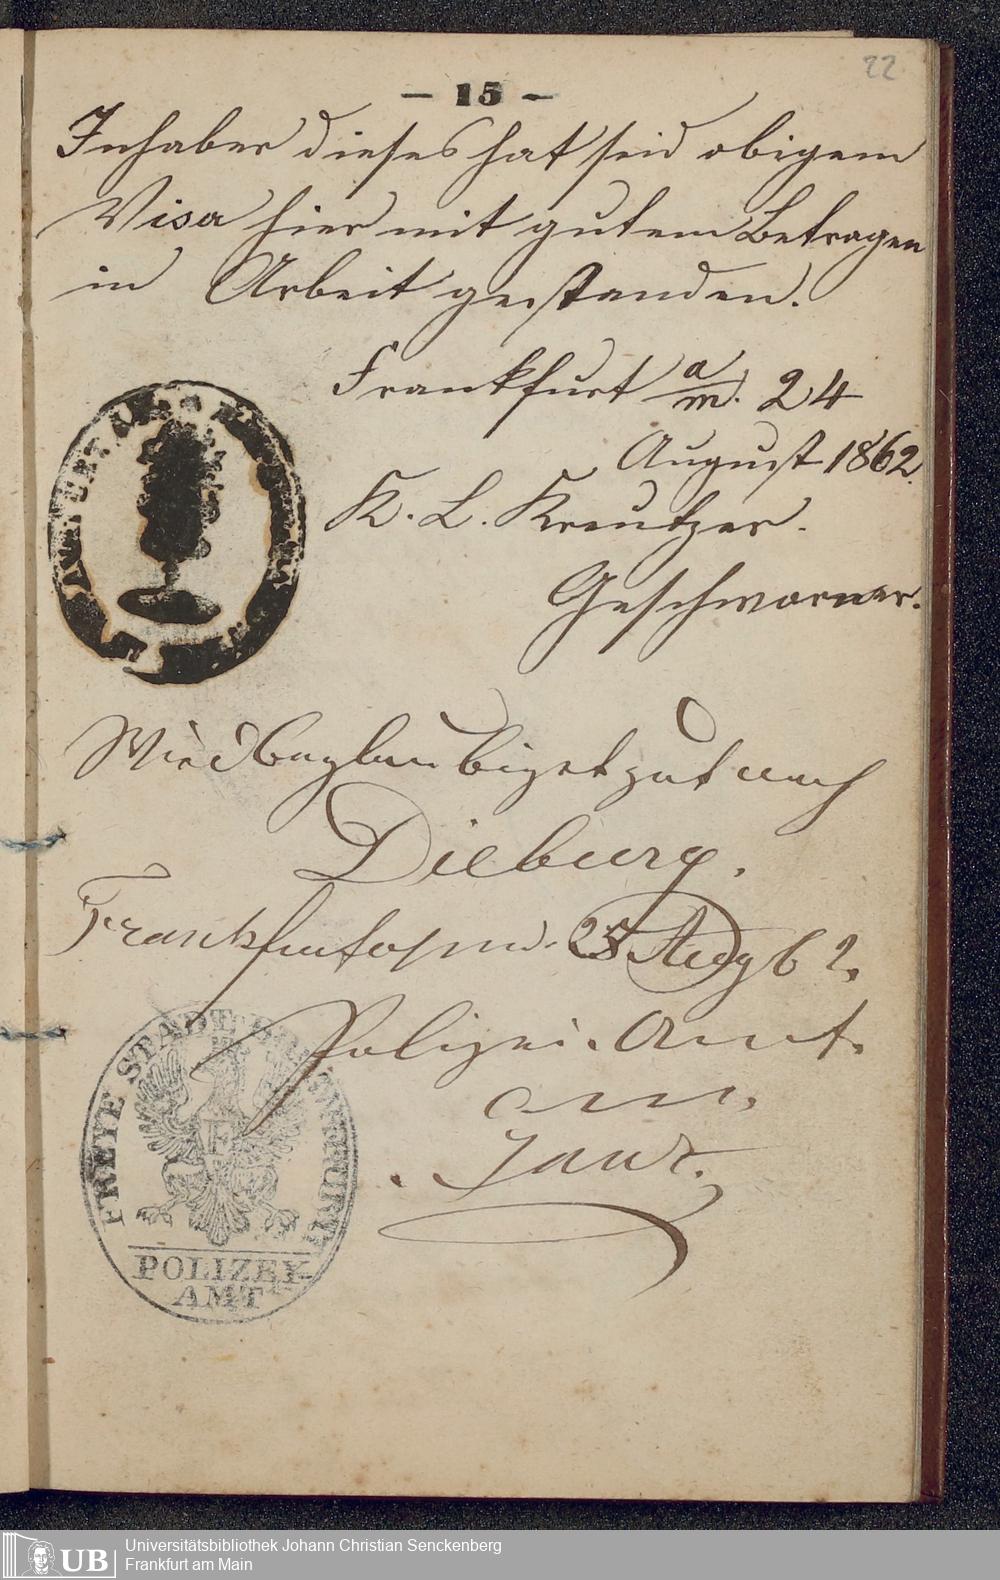 22
— 15 —
Inhaber dieses hat seid obigem
Visa hier mit gutem Betragen
in Arbeit gestanden.
Frankfurt a/m. 24
August 1862.
K. L. Kreutzer.
Geschworner.
Wird beglaubiget gut nach
Dieburg.
Frankfurt a/m. 25 Aug 62.
Polizei-Amt.
FREYE STADT FRANKFURT
POLIZEY-
AMT
UB
Universitätsbibliothek Johann Christian Senckenberg
Frankfurt am Main